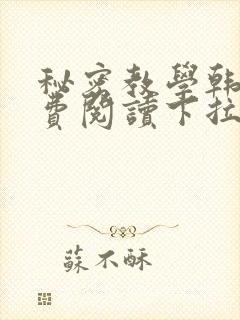 秘密教學韓
費閱讀下拉
蘇不酥